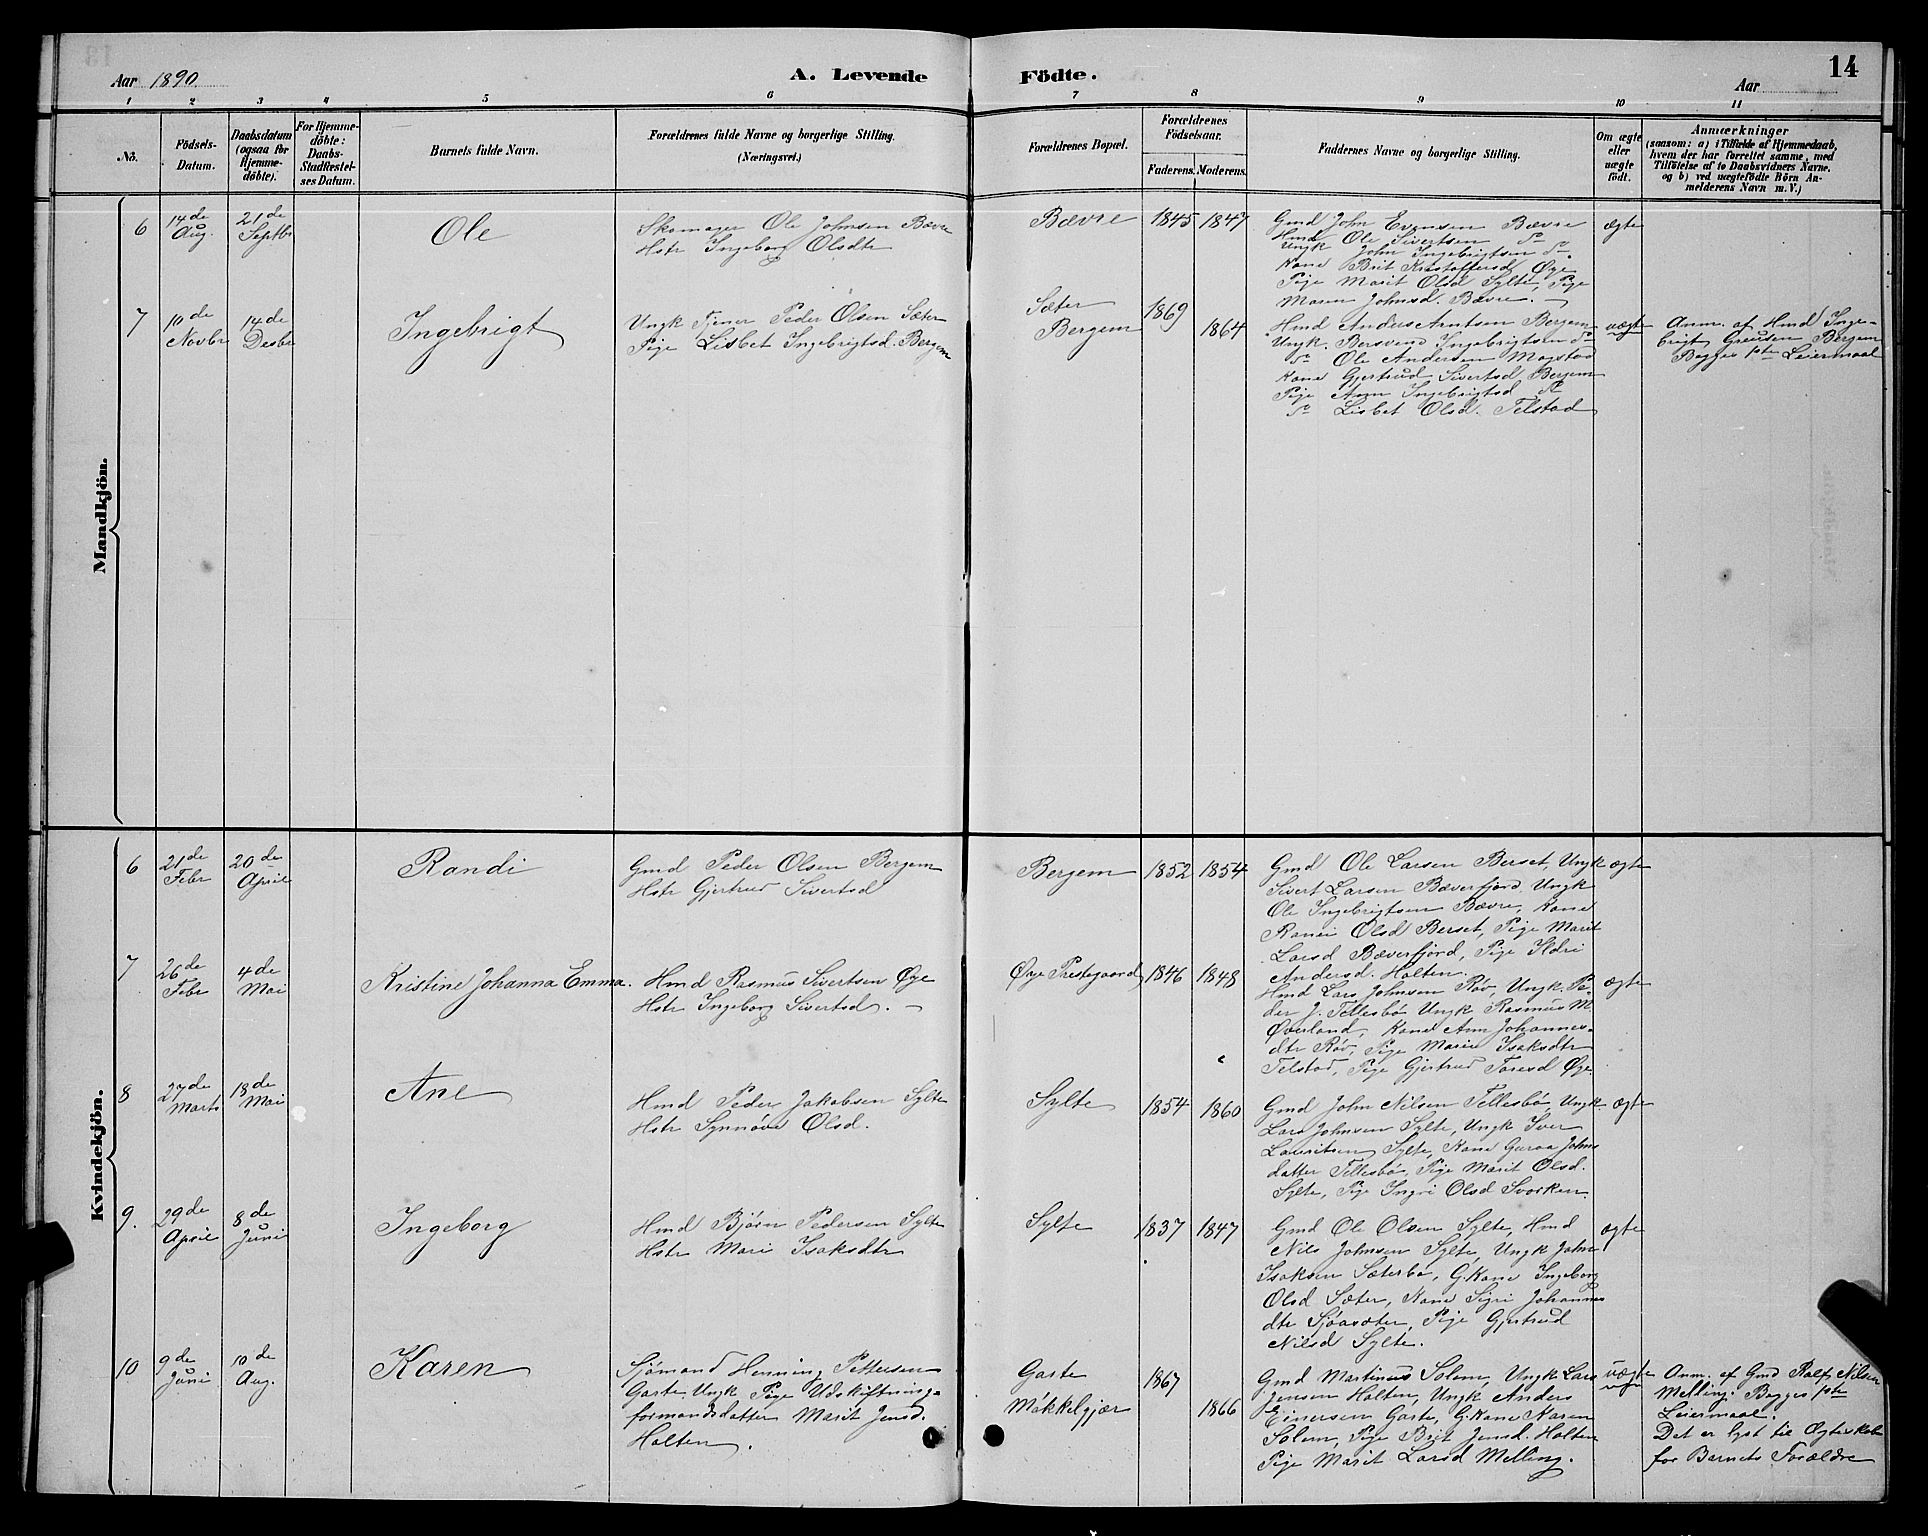 14
Aar 1890.
A. Levende Födte.
Aar
1 2 3 4 5 6 7 8 9 10 11
No.
Födsels-
Datum.
Daabsdatum
(ogsaa for
Hjemme-
döbte).
For Hjemme-
döbte:
Daabs-
Stadfæstel-
ses Datum.
Barnets fulde Navn.
Forældrenes fulde Navne og borgerlige Stilling.
(Næringsvei.)
Forældrenes Bopæl.
Forældrenes
Födselsaar.
Faderens. Moderens.
Faddernes Navne og borgerlige Stilling.
Om ægte
eller
uægte
födt.
Anmærkninger
(saasom: a) i Tilfælde af Hjemmedaab,
hvem der har forrettet samme, med
Tilföielse af to Daabsvidners Navne.
og b) ved uægtefödte Börn An-
melderens Navn m. V.)
Mandkjön.
6
14de
Aug.
21de
Septbr
Ole
Skomager Ole Johnsen Bævre
Hstr Ingeborg Olsdtr
Bævre
1845
1847
Gmd John Evensen Bævre
Hmd Ole Sivertsen do
Ungk John Ingebrigtsen do.
Kone Brit Kristoffersd Øye
Pige Marit Olsd Sylte, Pige
Maren Johnsd. Bævre.
ægte
7
10de
Novbr
14de
Desbr
Ingebrigt
Ungk Tjener Peder Olsen Sæter
Pige Lisbet Ingebrigtsd. Bergem
Sæter
Bergem
1869
1864
Hmd Anders Arntsen Bergem
Ungk. Bersvend Ingebrigtsen do
do Ole Andersen Mogstad
Kone Gjertrud Sivertsd Bergem
Pige Ann Ingebrigtsd do
do Lisbet Olsd. Telstad
uægte
Anm. af Hmd Inge-
brigt Bergem
Begges 1ste Leiermaal
Kvindekjön.
6
21de
Febr
20de
April
Randi
Gmd Peder Olsen Bergem
Hstr Gjertrud Sivertsd
Bergem
1852
1854
Gmd Ole Larsen Berset, Ungk
Sivert Larsen Bæverfjord, Ungk
Ole Ingebrigtsen Bævre, Kone
Ranei Olsd Berset, Pige Marit
Larsd Bæverfjord, Pige Ildri
Andersd. Holten.
ægte
7
26de
Febr
4de
Mai
Kristine Johanna Emma.
Hmd Rasmus Sivertsen Øye
Hstr Ingeborg Sivertsd.
Øye Prestegaard
1846
1848
Hmd Lars Johnsen Röv, Ungk. Pe-
der J. Tellesbø Ungk Rasmus M
Øverland, Kone Ann Johannes-
dtr Röv, Pige Marie Isaksdtr
Telstad, Pige Gjertrud Toresd Øye
ægte
8
27de
Marts
18de
Mai
Ane
Hmd Peder Jakobsen Sylte
Hstr Synnöve Olsd.
Sylte
1854
1860
Gmd John Nilsen Tellesbø, Ungk
Lars Johnsen Sylte, Ungk Iver
Lauritsen Sylte, Kone Guroa Johns
datter Tellesbø, Pige Marit Olsd.
Sylte, Pige Ingri Olsd Svorken.
ægte
9.
29de
April
8de
Juni
Ingeborg
Hmd Bjørn Pedersen Sylte
Hstr Mari Isaksdtr
Sylte
1837
1847
Gmd Ole Olsen Sylte, Hmd
Nils Johnsen Sylte, Ungk John
Isaksen Sæterbø, G.Kone Ingeborg
Olsd Sæter, Kone Sigri Johannes
dtr Sjöasæter, Pige Gjertrud
Nilsd Sylte.
ægte
10
9de
Juni
10de
Aug.
Karen
Sjømand Henning Pettersen
Garte Ungk Pige Udskiftnings-
formandsdatter Marit Jensd.
Holten.
Garte
Møkkelgjær
1867
1866
Gmd Martinus Solem, Ungk Lars
Jensen Holten, Ungk Anders
Einersen Garte, G.Kone Karen
Solem, Pige Brit Jensd. Holten
Pige Marit Larsd Melling.
uægte
Anm. af Gmd Rolf Nilsen
Melling. Begges 1ste
Leiermaal.
Det er lyst til Ægteskab
for Barnets Forældre